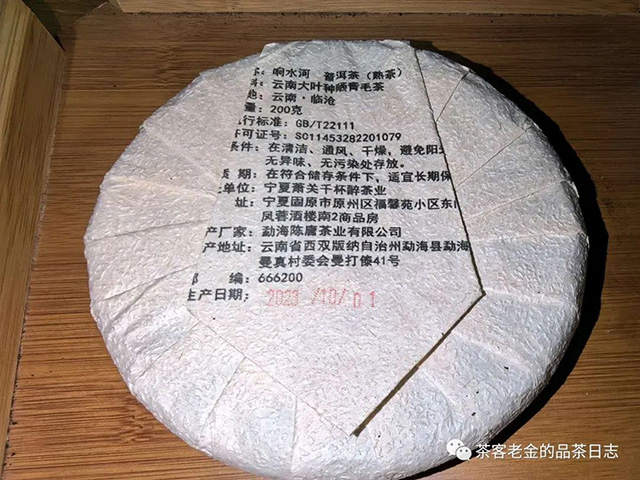 响水河 普洱茶（熟茶）
：云南大叶种晒青毛茶
：云南·临沧
量：200克
行标准：GB/T22111
许可证号：SC11453282201079
条件：在清洁、通风、干燥，避免阳
无异味、无污染处存放。
质 期：在符合储存条件下，适宜长期保
单位：宁夏萧关千杯醉茶业
址：宁夏固原市原州区福馨苑小区东
凤蓉酒楼南2商品房
产厂家：勐海陈庸茶业有限公司
产地址：云南省西双版纳自治州勐海县勐海
曼真村委会曼打傣41号
邮 编：666200
生产日期：2023/10/01
茶客老金的品茶日志